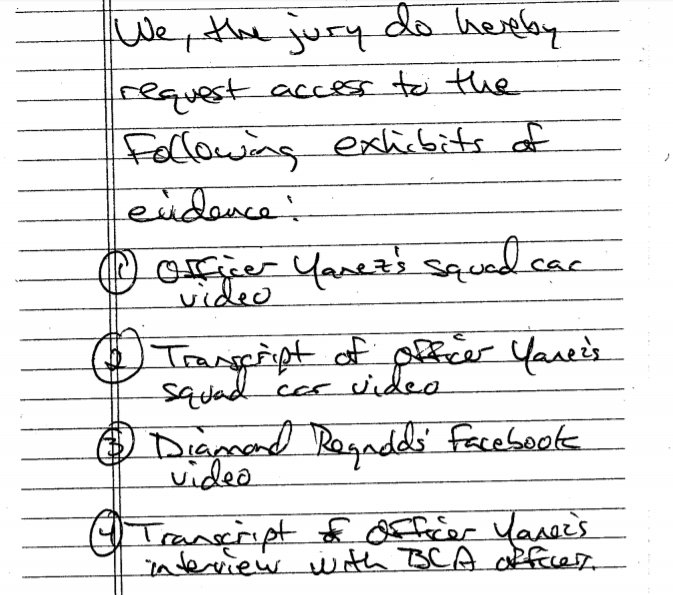 We, the jury do hereby
request access to the
Following exhibits of
evidence:
① Officer Yanez's squad car
video
② Transcript of officer Yanez's
squad car video
③ Diamond Reynolds' Facebook
video
④ Transcript of Officer Yanez's
interview with BCA officers.